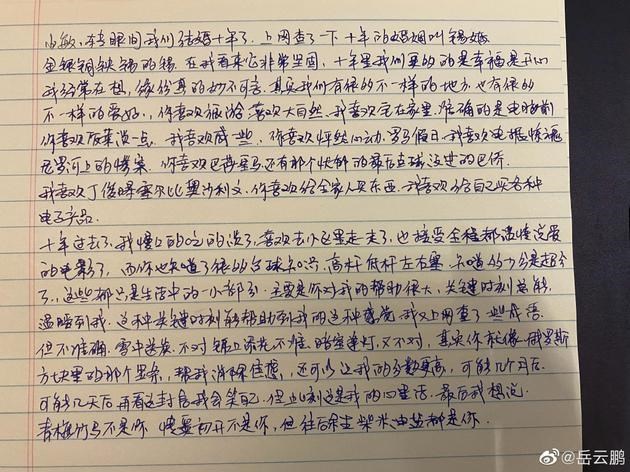 小敏，转眼间我们结婚十年了，上网查了一下十年的婚姻叫锡婚
金银铜铁锡的锡，在我看来它非常坚固，十年里我们更多的是幸福是开心
我经常在想，缘份真的妙不可言，其实我们有很多不一样的地方，也有很多
不一样的爱好，你喜欢旅游喜欢大自然，我喜欢宅在家里，准确的是电脑前
你喜欢饭菜淡一点，我喜欢咸一些，你喜欢怦然心动，罗马假日，我喜欢电锯惊魂
尼罗河上的惨案，你喜欢巴萨皇马还有那个快船的最后在球运过的巴侨
我喜欢丁俊晖塞尔比奥沙利文，你喜欢给全家人买东西，我喜欢给自己买各种
电子产品
十年过去了，我慢慢的吃的淡了，喜欢去小区里走走了，也接受全程都温情说爱
的电影了，而你也知道了很多台球知识，高杆低杆左右塞，知道147分是超了
了，这些都只是生活中的一小部分，主要是你对我的帮助很大，关键时刻总能
温暖到我，这种关键时刻能帮助到我的这种感觉，我又上网查了些成语
但不准确，雪中送炭，不对，锦上添花不准，暗室逢灯，又不对，其实你就像一俄罗斯
方块里的那个竖条，帮我消除住愁，还可以让我的分数更高，可能几个月后
可能几天后再看这封信我会笑自己，但此刻这是我的心里话，最后我想说
青梅竹马不是你，情窦初开不是你，但往后余生柴米油盐都是你
@岳云鹏